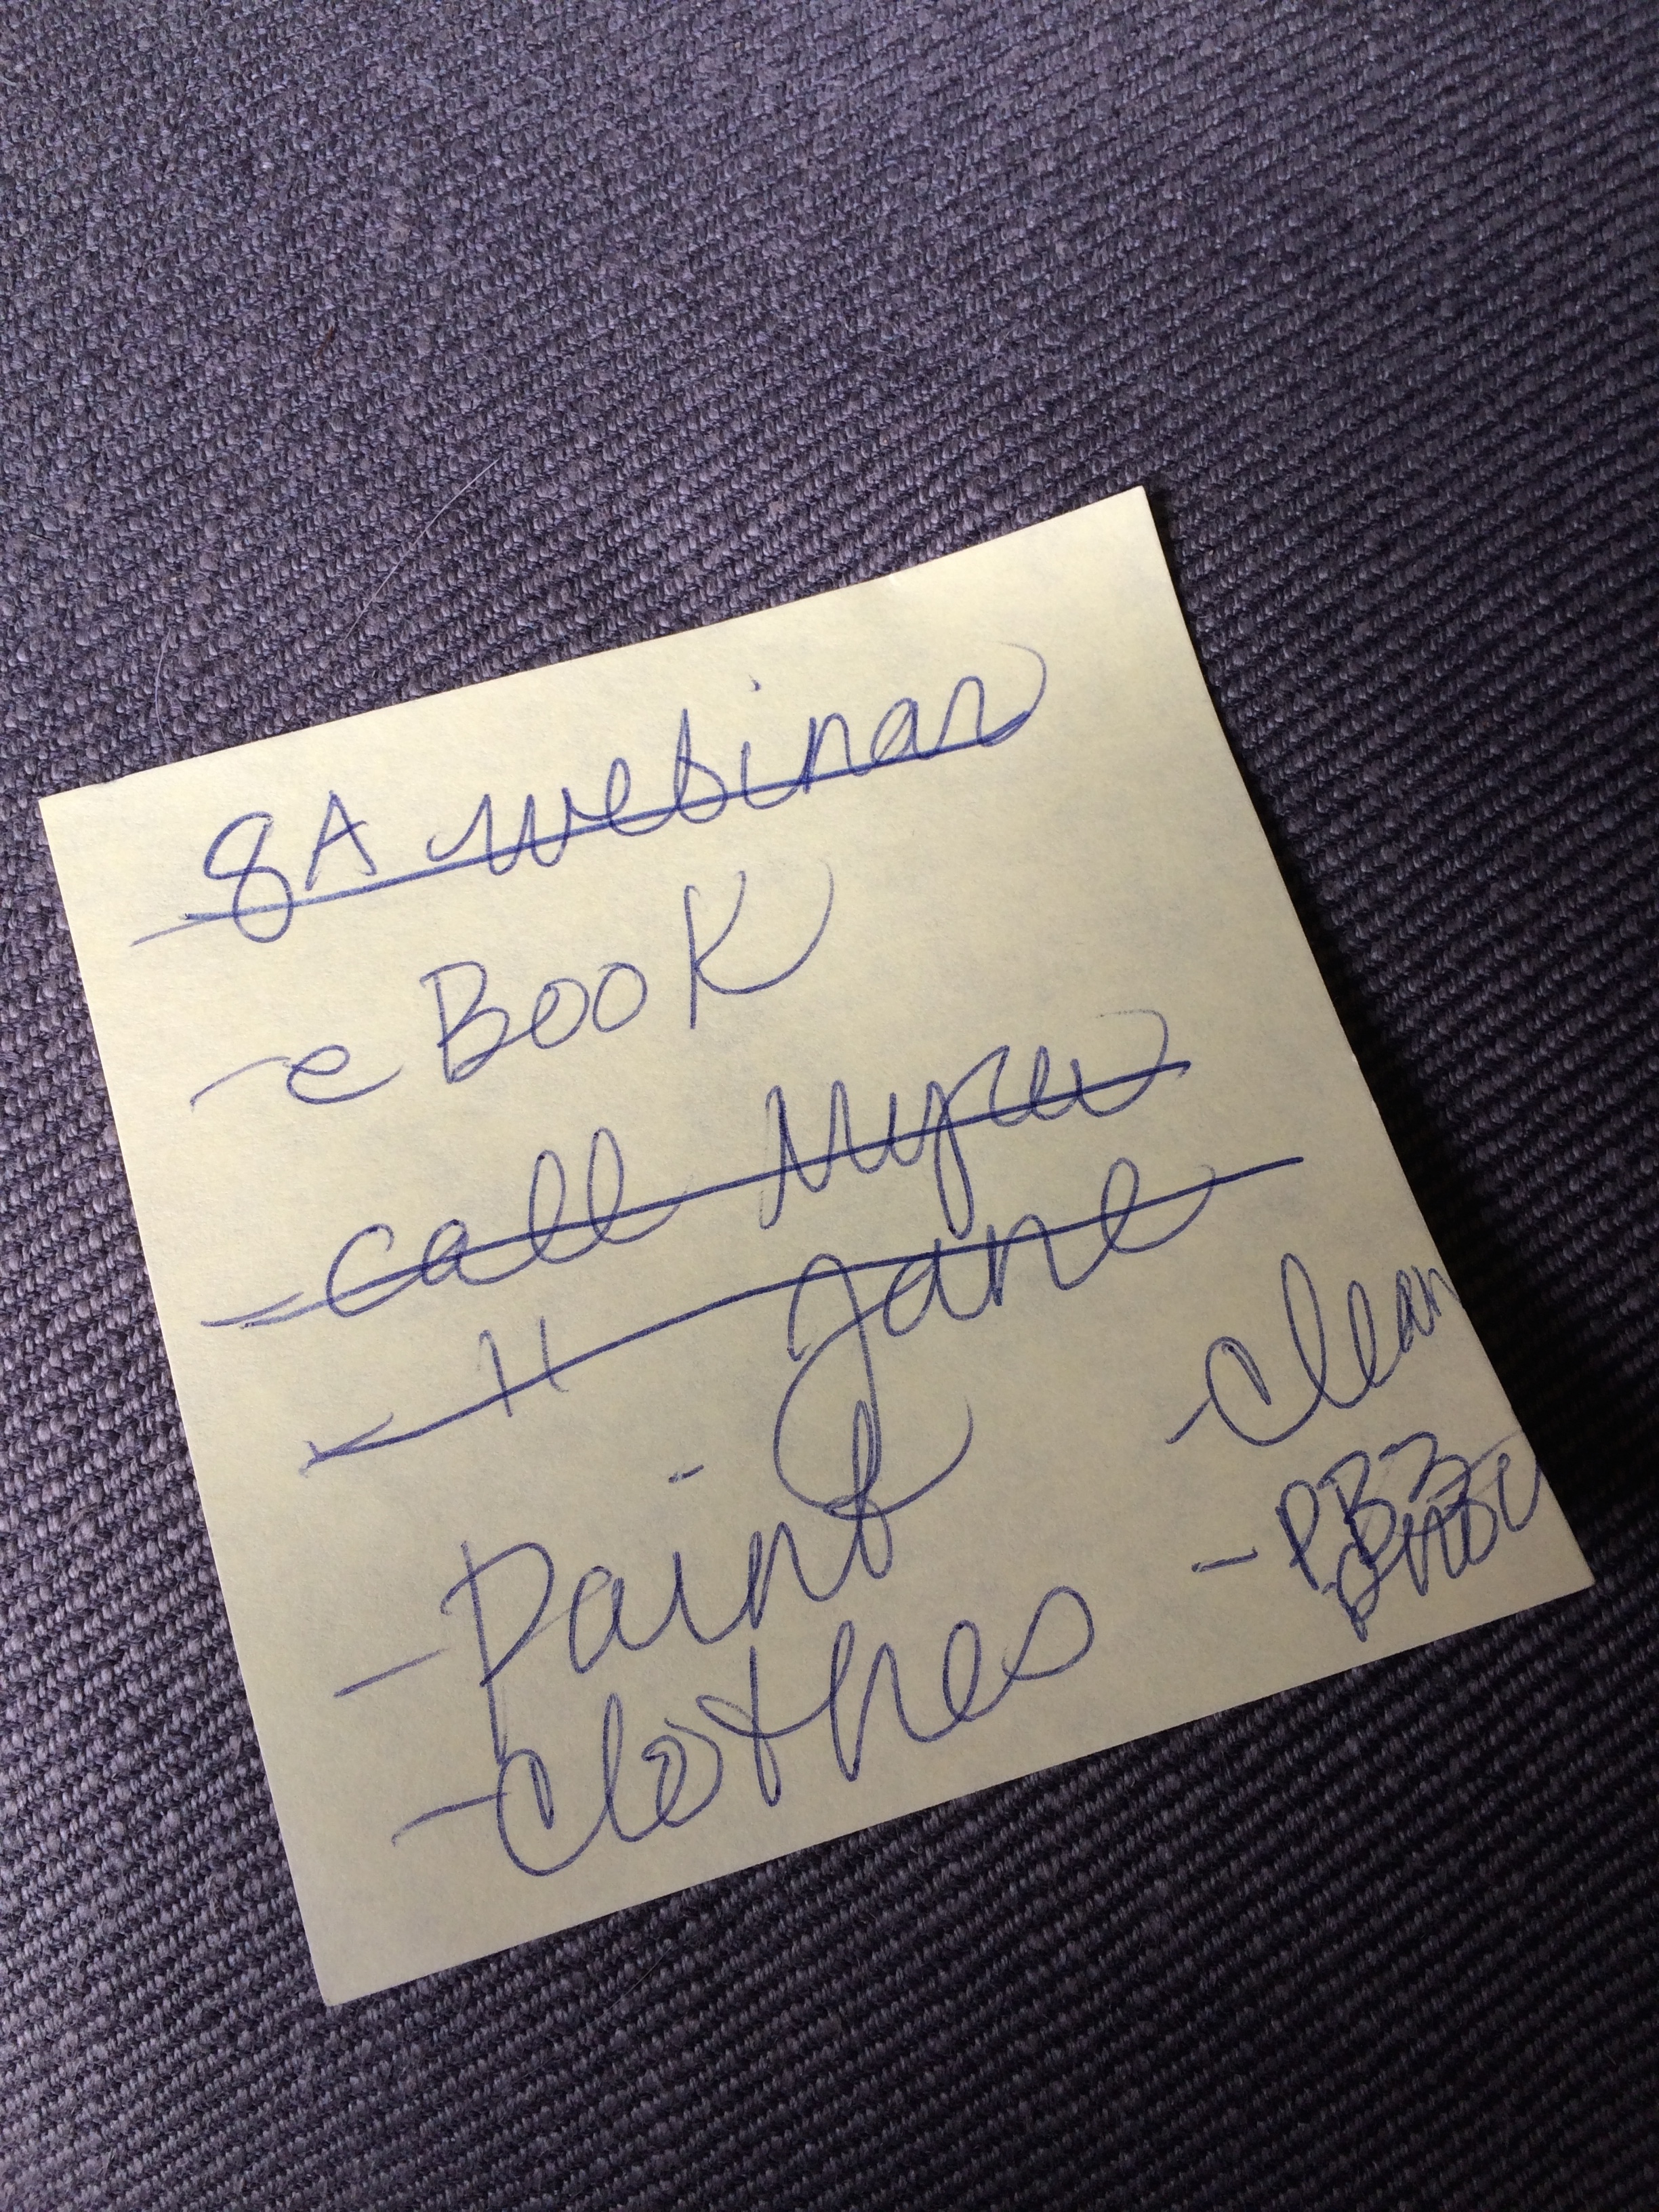 - 8A webinar
- eBook
- call
- " Jane
- Paint
- clothes
- clean
- PB